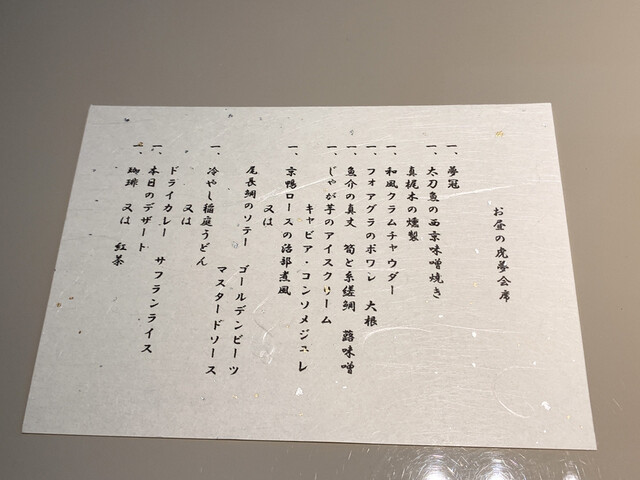 お昼の虎夢会席
一、夢冠
一、太刀魚の西京味噌焼き
真梶木の燻製
一、和風クラムチャウダー
一、フォアグラのポワレ 大根
一、魚介の真丈 筍と糸縒鯛 蕗味噌
一、じゃが芋のアイスクリーム
キャビア・コンソメジュレ
一、京鴨ロースの治部煮風
又は
尾長鯛のソテー ゴールデンビーツ
マスタードソース
一、冷やし稲庭うどん
又は
ドライカレー サフランライス
一、本日のデザート
一、珈琲 又は 紅茶